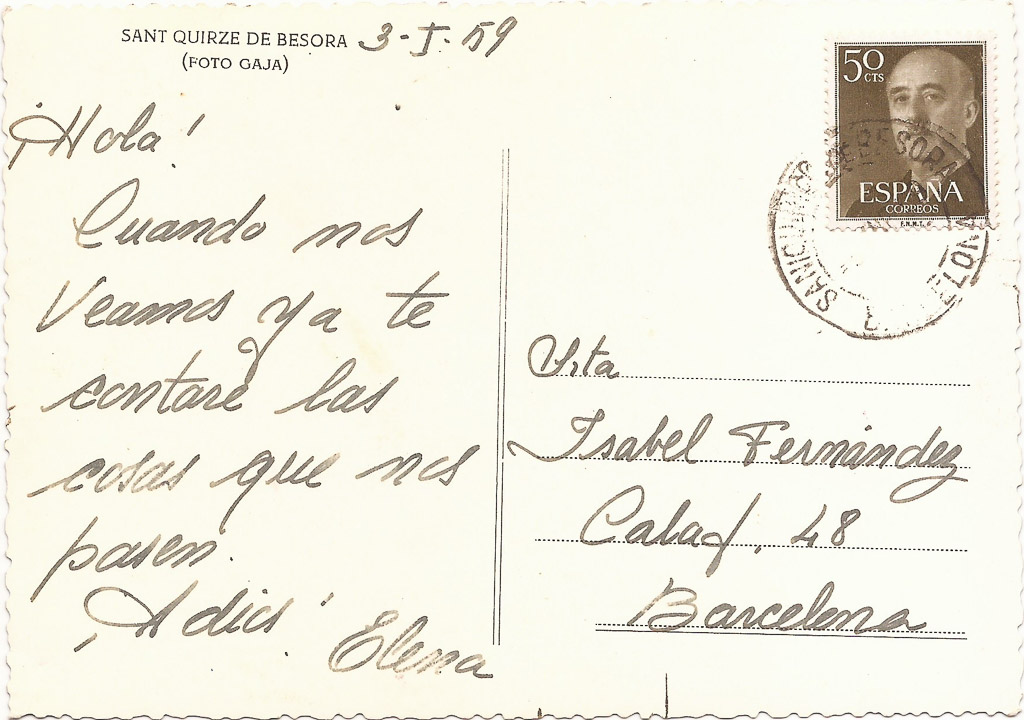 SANT QUIRZE DE BESORA 3-I-59
(FOTO GAJA)
¡Hola!
Cuando nos
Veamos ya te
contaré las
cosas que nos
pasen.
¡Adios!
Elena
50 CTS
ESPAÑA
CORREOS
F.N.M.T.
Srta
Isabel Fernández
Calaf, 48
Barcelona